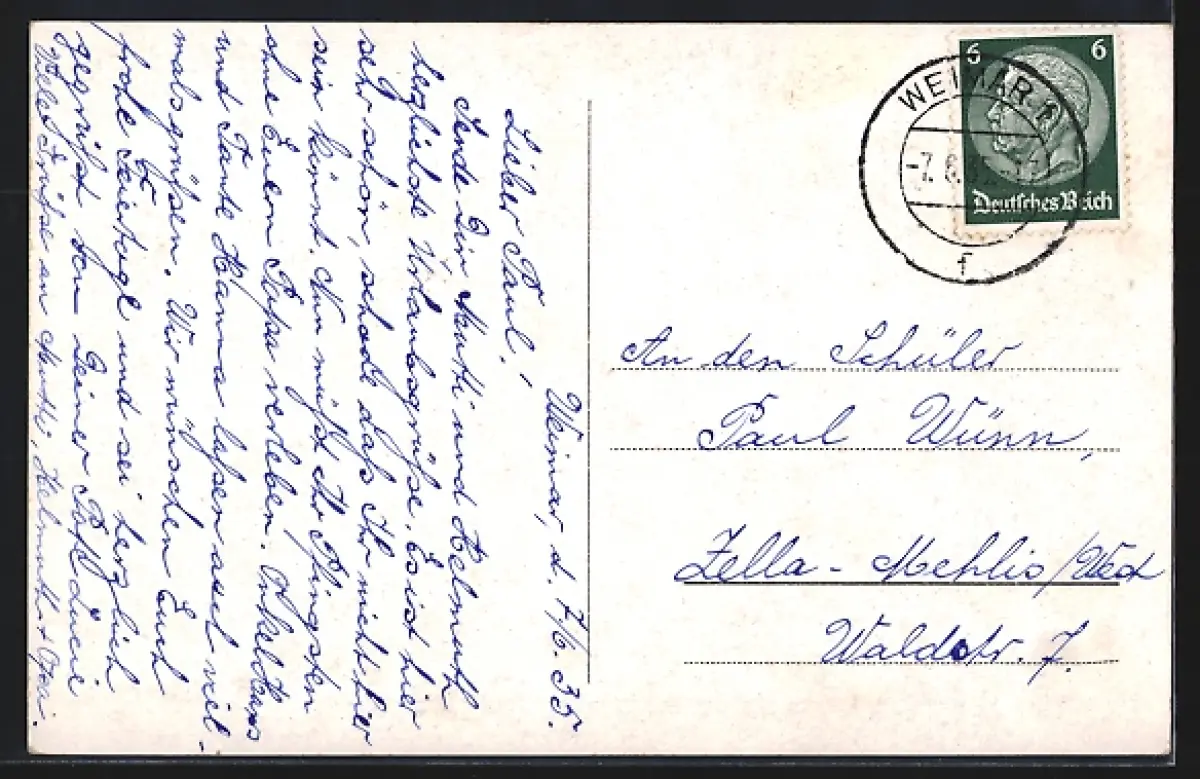 Weimar, d. 7/6. 35.
Lieber Paul!
Sende Dir, Mutti und Helmuth
herzlichste Urlaubsgrüße. Es ist hier
sehr schön, schade daß Ihr nicht hier
sein könnt. Nun müßt Ihr Pfingsten
ohne Euern Papa verleben. Onkel
und Tante Hanna laßen auch viel-
mals grüßen. Wir wünschen Euch
frohe Feiertage und sei herzlich
gegrüßt von Deiner
Viele Grüße an Mutti, Helmuth +
6 6
Deutsches Reich
WEIMAR 1
-7.6.35
f
An den Schüler
Paul Wünn,
Zella-Mehlis/
Waldstr. 7.